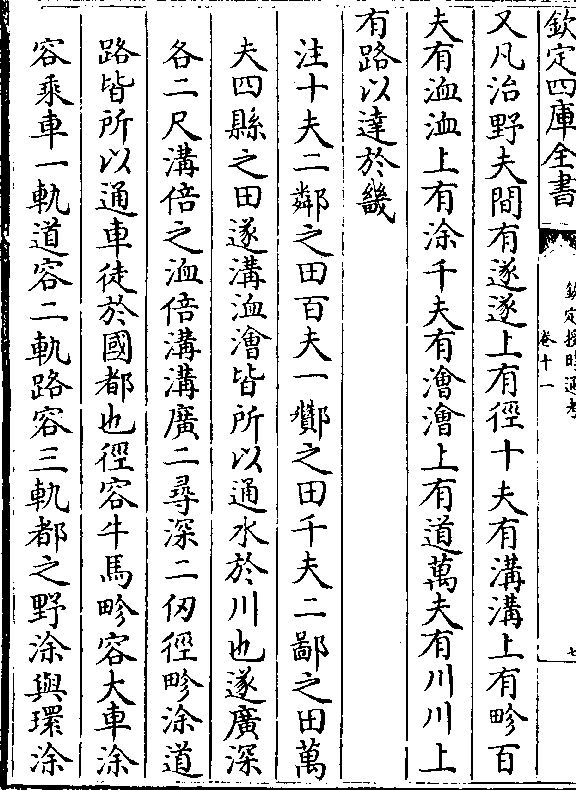 欽定四庫全書
欽定授時通考
卷十一
七
又凡治野夫間有遂遂上有徑十夫有溝溝上有畛百
夫有洫洫上有涂千夫有澮澮上有道萬夫有川川上
有路以達於畿
注十夫二鄰之田百夫一酇之田千夫二鄙之田萬
夫四縣之田遂溝洫澮皆所以通水於川也遂廣深
各二尺溝倍之洫倍溝溝廣二尋深二仞徑畛涂道
路皆所以通車徒於國都也徑容牛馬畛容大車涂
容乘車一軌道容二軌路容三軌都之野涂與環涂